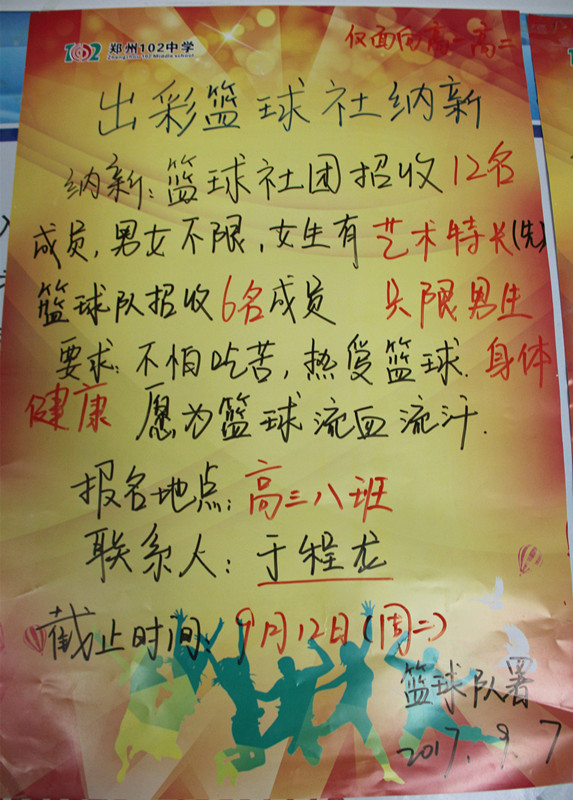 102 郑州102中学
Zhengzhou 102 Middle school
仅面向高一高二
出彩篮球社纳新
纳新:篮球社团招收12名
成员,男女不限,女生有艺术特长(先)
篮球队招收6名成员 只限男生
要求:不怕吃苦,热爱篮球.身体
健康 愿为篮球流血流汗.
报名地点:高三八班
联系人:于程龙
截止时间:9月12日(周二)
篮球队署
2017.9.7